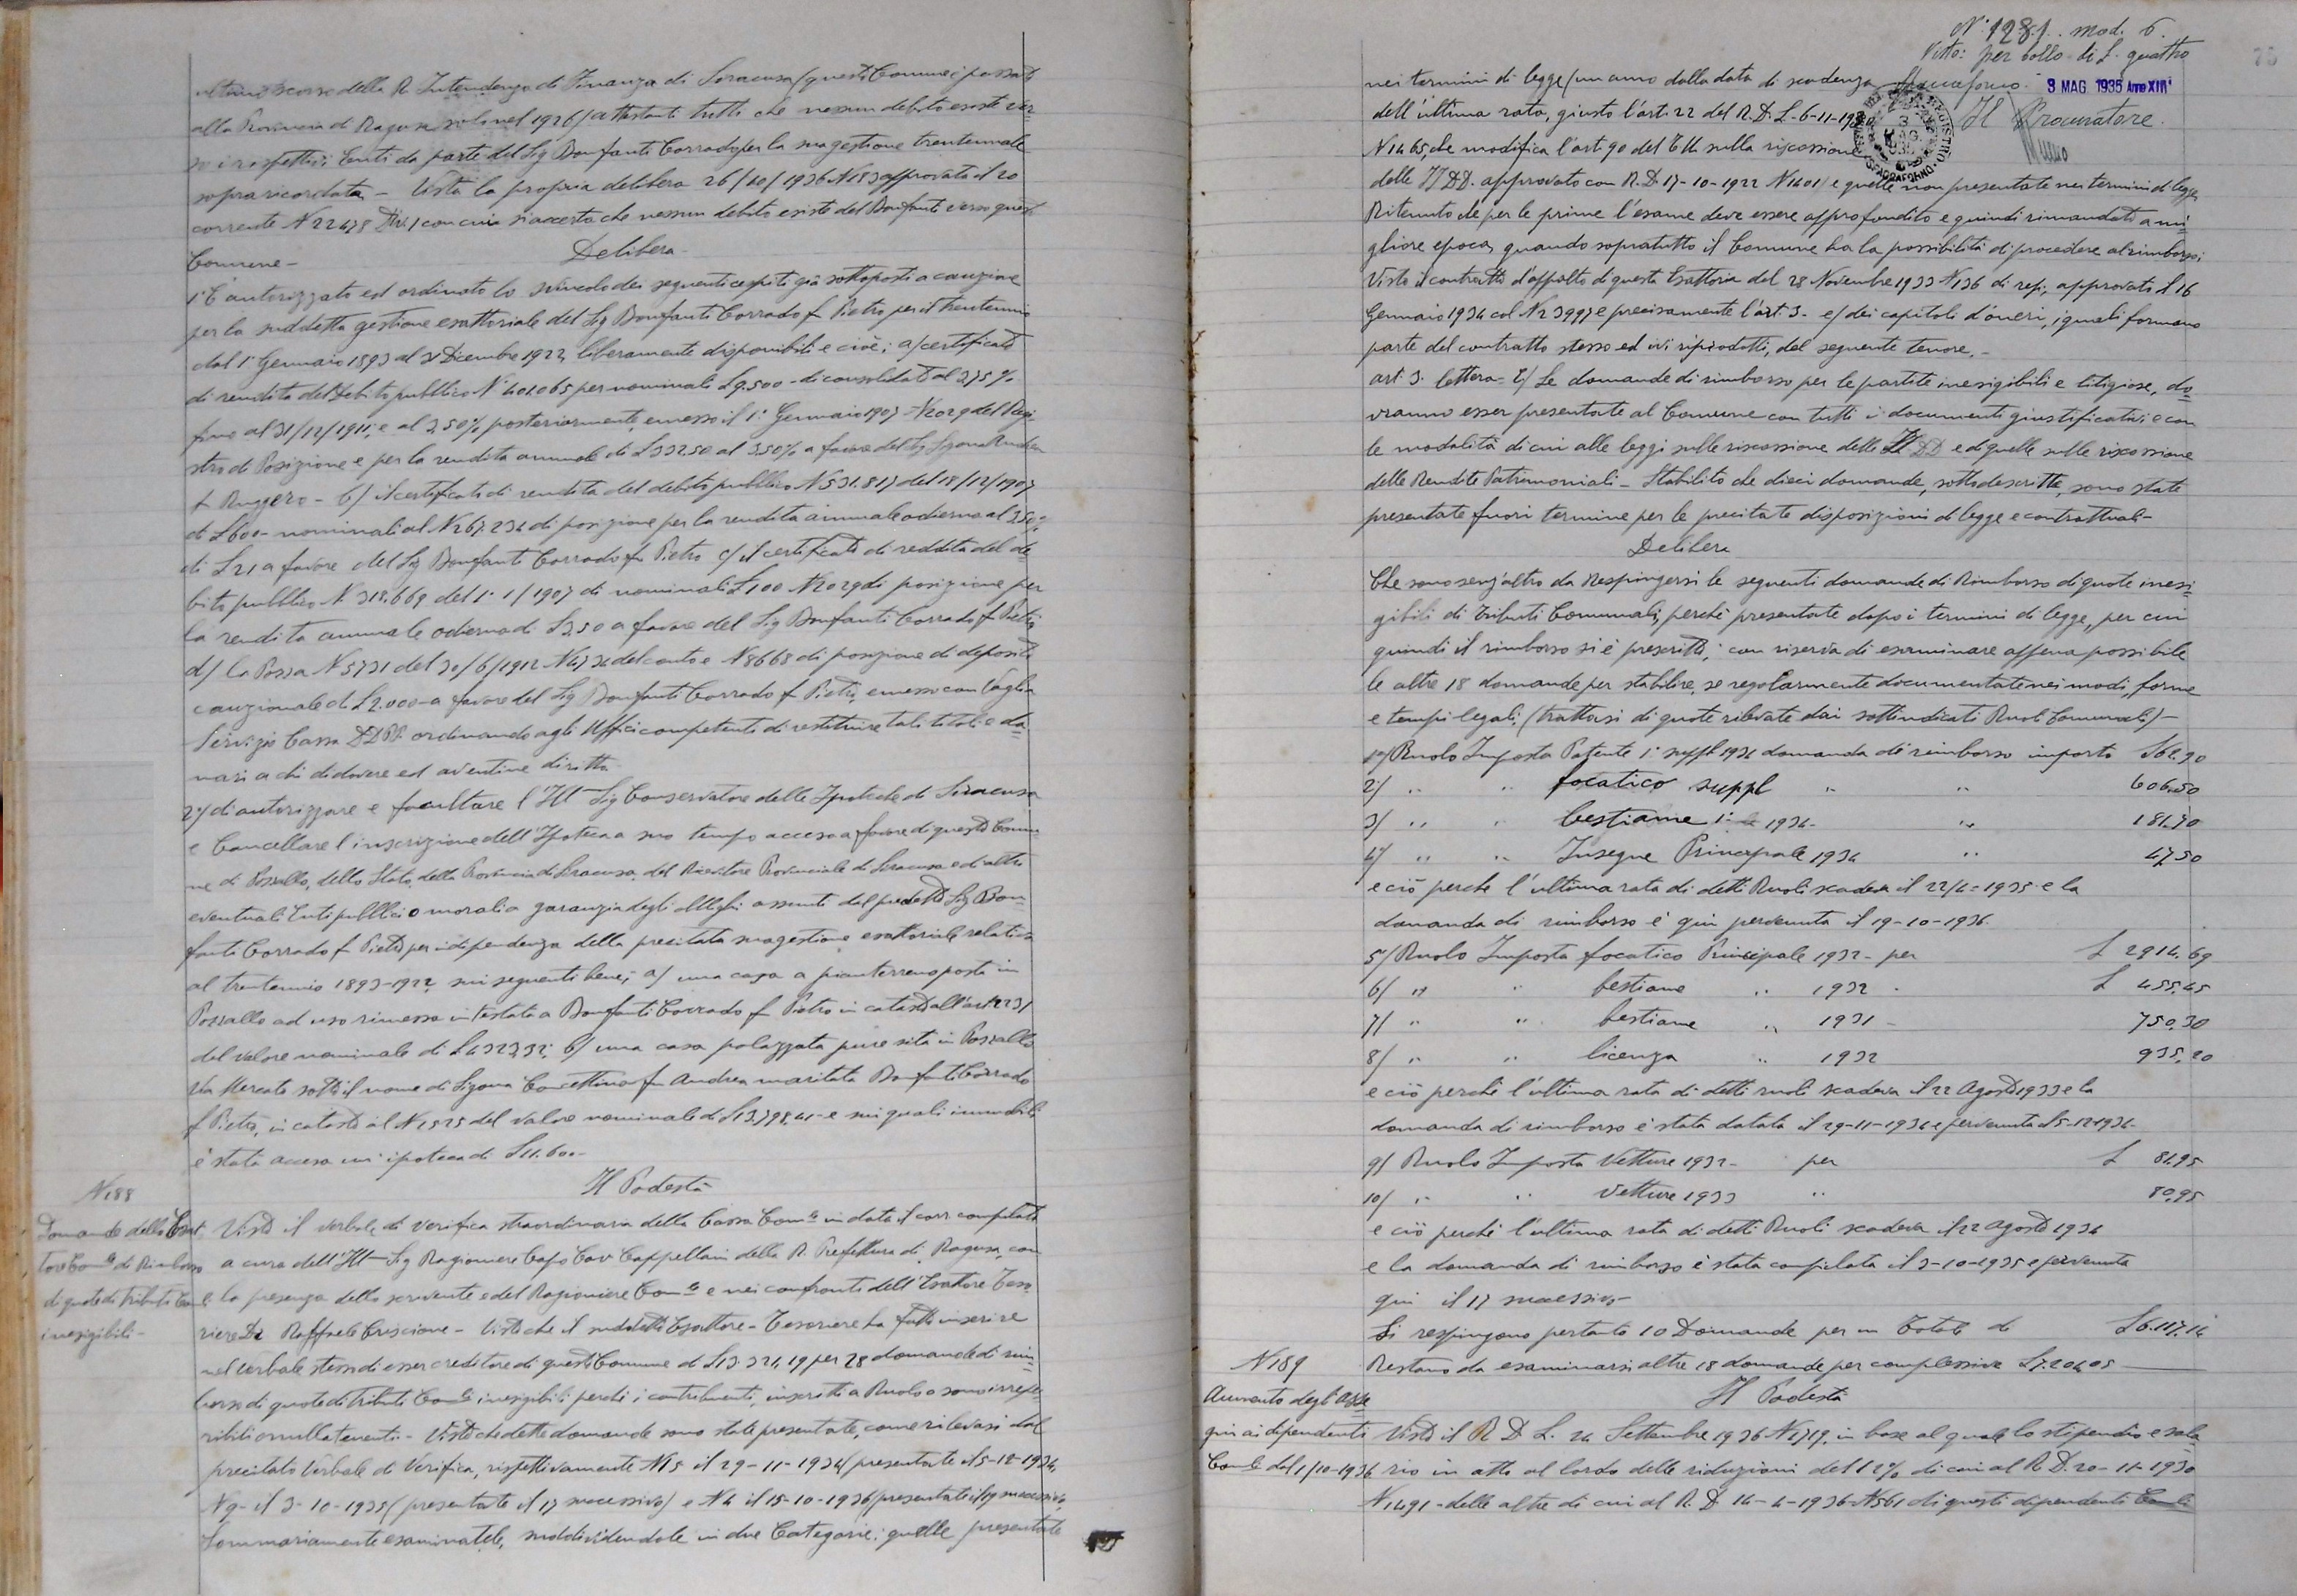 ultimo scorso della R. Intendenza di Finanza di Siracusa (questo Comune è passato
alla Provincia di Ragusa solo nel 1926) attestanti tutti che nessun debito esiste ver
so i rispettivi Enti da parte del Sig Bonfanti Corrado per la sua gestione trentennale
sopra ricordata - Vista la propria delibera 26/10/1936 N 183 approvata il 20
corrente N 22478 Div. 1 con cui si accerta che nessun debito esiste del Bonfanti verso questo
Comune -
Delibera -
1° È autorizzato ed ordinato lo svincolo dei seguenti cespiti già sottoposti a cauzione
per la suddetta gestione esattoriale del Sig Bonfanti Corrado f Pietro per il trentennio
dal 1° Gennaio 1893 al 31 Dicembre 1922, liberamente disponibili e cioè: a) certificato
di rendita del Debito pubblico N° 401.065 per nominali L 9.500 - di consolidato al 3,75 %
fino al 31/12/1911, e al 3,50 % posteriormente, emesso il 1° Gennaio 1907 - N 2029 del Regi
stro di Posizione e per la rendita annuale di L 332.50 al 3.50 % a favore del Sig Sigona Andrea
f Ruggero - b) il certificato di rendita del debito pubblico N 531.817 del 18/12/1907
di L 600 - nominali al N 267.234 di posizione per la rendita annuale odierna al 3.50 %
di L 21 a favore del Sig Bonfanti Corrado f Pietro c) il certificato di reddita del de
bito pubblico N. 318.669 del 1. 1/1907 di nominali L 100 N 2029 di posizione per
la rendita annuale odierna di L 3,50 a favore del Sig Bonfanti Corrado f Pietro,
d) la Polizza N 5731 del 30/6/1912 N 4734 del conto e N 8668 di posizione di deposito
cauzionale di L 2.000 - a favore del Sig Bonfanti Corrado f Pietro, emesso con Vaglia
Servizio Cassa DD PP. ordinando agli Uffici competenti di restituire tali titoli e da=
nari a chi di dovere ed aventine diritto
2°) di autorizzare e facultare l'Ill Sig Conservatore delle Ipoteche di Siracusa
a Cancellare l'inscrizione dell'Ipoteca a suo tempo accesa a favore di questo Comu
ne di Pozzallo, dello Stato, della Provincia di Siracusa, del Ricevitore Provinciale di Siracusa e di altri
eventuali Enti pubblici o morali a garanzia degli obblighi assunti dal predetto Sig Bon=
fanti Corrado f Pietro per indipendenza della precitata sua gestione esattoriale relativa
al trentennio 1893-1922, sui seguenti beni: a) una casa a pianterreno posta in
Pozzallo ad uso rimessa intestata a Bonfanti Corrado f Pietro in catasto all'art 2231
del valore nominale di L 4323,32; b) una casa palazzata pure sita in Pozzallo
Via Mercato sotto il nome di Sigona Concettina f Andrea maritata Bonfanti Corrado
f Pietro, in catasto al N 1525 del valore nominale di L 13.798,41 - e sui quali immobili
è stata accesa un'ipoteca di L 11.600 -
Il Podestà
N 188
Domande dello Esat
tore Comle di Rimborso
di quote di tributi Comli
inesigibili -
Visto il verbale di verifica straordinaria della Cassa Comle in data il corr compilato
a cura dell'Ill Sig Ragioniere Capo Cav Cappellani della R. Prefettura di Ragusa, con
la presenza dello scrivente e del Ragioniere Comle e nei confronti dell'Esattore Teso
riere Dr Raffaele Criscione - Visto che il suddetto Esattore - Tesoriere ha fatto inserire
nel verbale stesso di esser creditore di questo Comune di L 13.321,19 per 28 domande di rim=
borso di quote di tributi Comli inesigibili perchè i contribuenti, inscritti a Ruolo o sono irrepe
ribili o nullatenenti - Visto che dette domande sono state presentate, come rilevasi dal
precitato Verbale di Verifica, rispettivamente N 15 il 29-11-1934 (presentate il 5-12-1934,
N 9 - il 3-10-1935 (presentate il 17 successivo) e N 4 il 15-10-1936 (presentate il 19 successivo,
Sommariamente esaminatele, suddividendole in due Categorie: quelle presentate
N° 1281. mod. 6.
Visto: per bollo di L. quattro
3 MAG 1935 Anno XIII
Il Procuratore
nei termini di legge (un anno dalla data di scadenza
dell'ultima rata, giusto l'art. 22 del R. D. L. 6-11-1930
N 1465, che modifica l'art 90 del T U sulla riscossione
delle II DD. approvato con R. D. 17-10-1922 N 1401) e quelle non presentate nei termini di legge,
Ritenuto che per le prime l'esame deve essere approfondito e quindi rimandato a mi
gliore epoca, quando sopratutto il Comune ha la possibilità di procedere al rimborso;
Visto il contratto d'appalto di questa Esattoria del 28 Novembre 1933 N 136 di rep., approvato il 16
Gennaio 1934 col N 23997 e precisamente l'art. 3 - e) dei capitoli d'oneri, i quali formano
parte del contratto stesso ed ivi riprodotti, del seguente tenore. -
art. 3. lettera - E) Le domande di rimborso per le partite inesigibili e litigiose, do
vranno esser presentate al Comune con tutti i documenti giustificativi e con
le modalità di cui alle leggi sulle riscossione delle II DD e di quelle sulle riscossione
delle Rendite Patrimoniali - Stabilito che dieci domande, sotto descritte, sono state
presentate fuori termine per le precitate disposizioni di legge e contrattuali -
Delibera
Che sono senz'altro da respingersi le seguenti domande di Rimborso di quote inesi=
gibili di tributi Comunali, perchè presentate dopo i termini di legge, per cui
quindi il rimborso si è prescritto; con riserva di esaminare appena possibile
le altre 18 domande per stabilire, se regolarmente documentate nei modi, forme
e tempi legali, (trattasi di quote rilevate dai sottindicati Ruoli Comunali) -
1°) Ruolo Imposta Patente 1° suppl 1934 domanda di rimborso importo L 62.90
2) " " focatico suppl " " 606.50
3) " " bestiame 1° 1934 - " 181.70
4°) " " Insegne Principale 1934 " 47,50
e ciò perchè l'ultima rata di detti Ruoli scadeva il 22/4-1935 e la
domanda di rimborso è qui pervenuta il 19-10-1936.
5°) Ruolo Imposta focatico Principale 1932 - per L 2914.69
6) " " bestiame " 1932 - L 455.45
7) " " bestiame " 1931 - 750.30
8) " " licenza " 1932 935.20
e ciò perchè l'ultima rata di detti ruoli scadeva il 22 Agosto 1933 e la
domanda di rimborso è stata datata il 29-11-1934 e pervenuta il 5-12-1934 -
9) Ruolo Imposta Vetture 1932 - per L 81.95
10) " " Vetture 1933 " 80.95
e ciò perchè l'ultima rata di detti Ruoli scadeva il 22 Agosto 1934
e la domanda di rimborso è stata compilata il 3-10-1935 e pervenuta
qui il 17 successivo -
Si respingono pertanto 10 Domande per un Totale di L 6.117.14
Restano da esaminarsi altre 18 domande per complessive L 7.204,05
Il Podestà
N 189
Aumento degli asse
gni ai dipendenti
Comli dal 1/10-1936
Visto il R D L. 24 Settembre 1936 N 1719, in base al quale lo stipendio e sala
rio in atto al lordo delle riduzioni del 12% di cui al R. D. 20-11-1930
N 1491 - delle altre di cui al R. D. 14-4-1936 - N 561 di questi dipendenti Comli